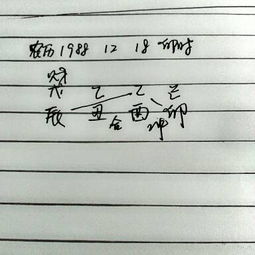 农历1988 12 18 卯时
财
戊 乙 乙 己
辰 丑 酉 卯
合 冲